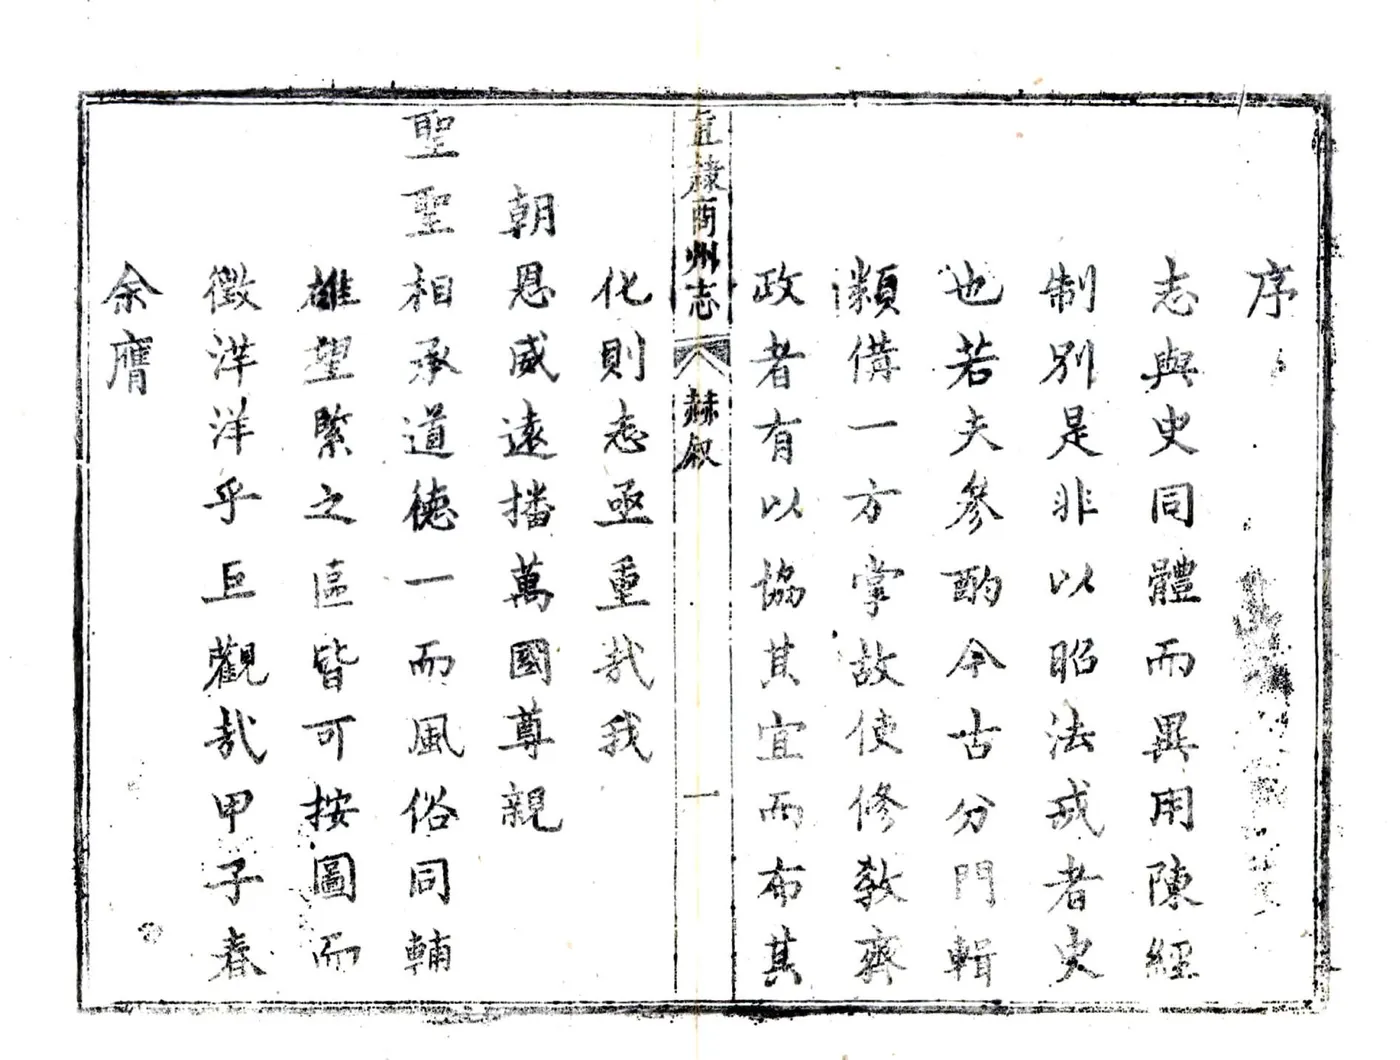 序
志與史同體而異用陳經
制別是非以昭法戒者史
也若夫參酌今古分門輯
類備一方掌故使修教齊
政者有以協其宜而布其
直隸商州志
赫叙
一
化則志亟重哉我
朝恩威遠播萬國尊親
聖聖相承道德一而風俗同輔
雄望緊之區皆可按圖而
徵洋洋乎巨觀哉甲子春
余膺